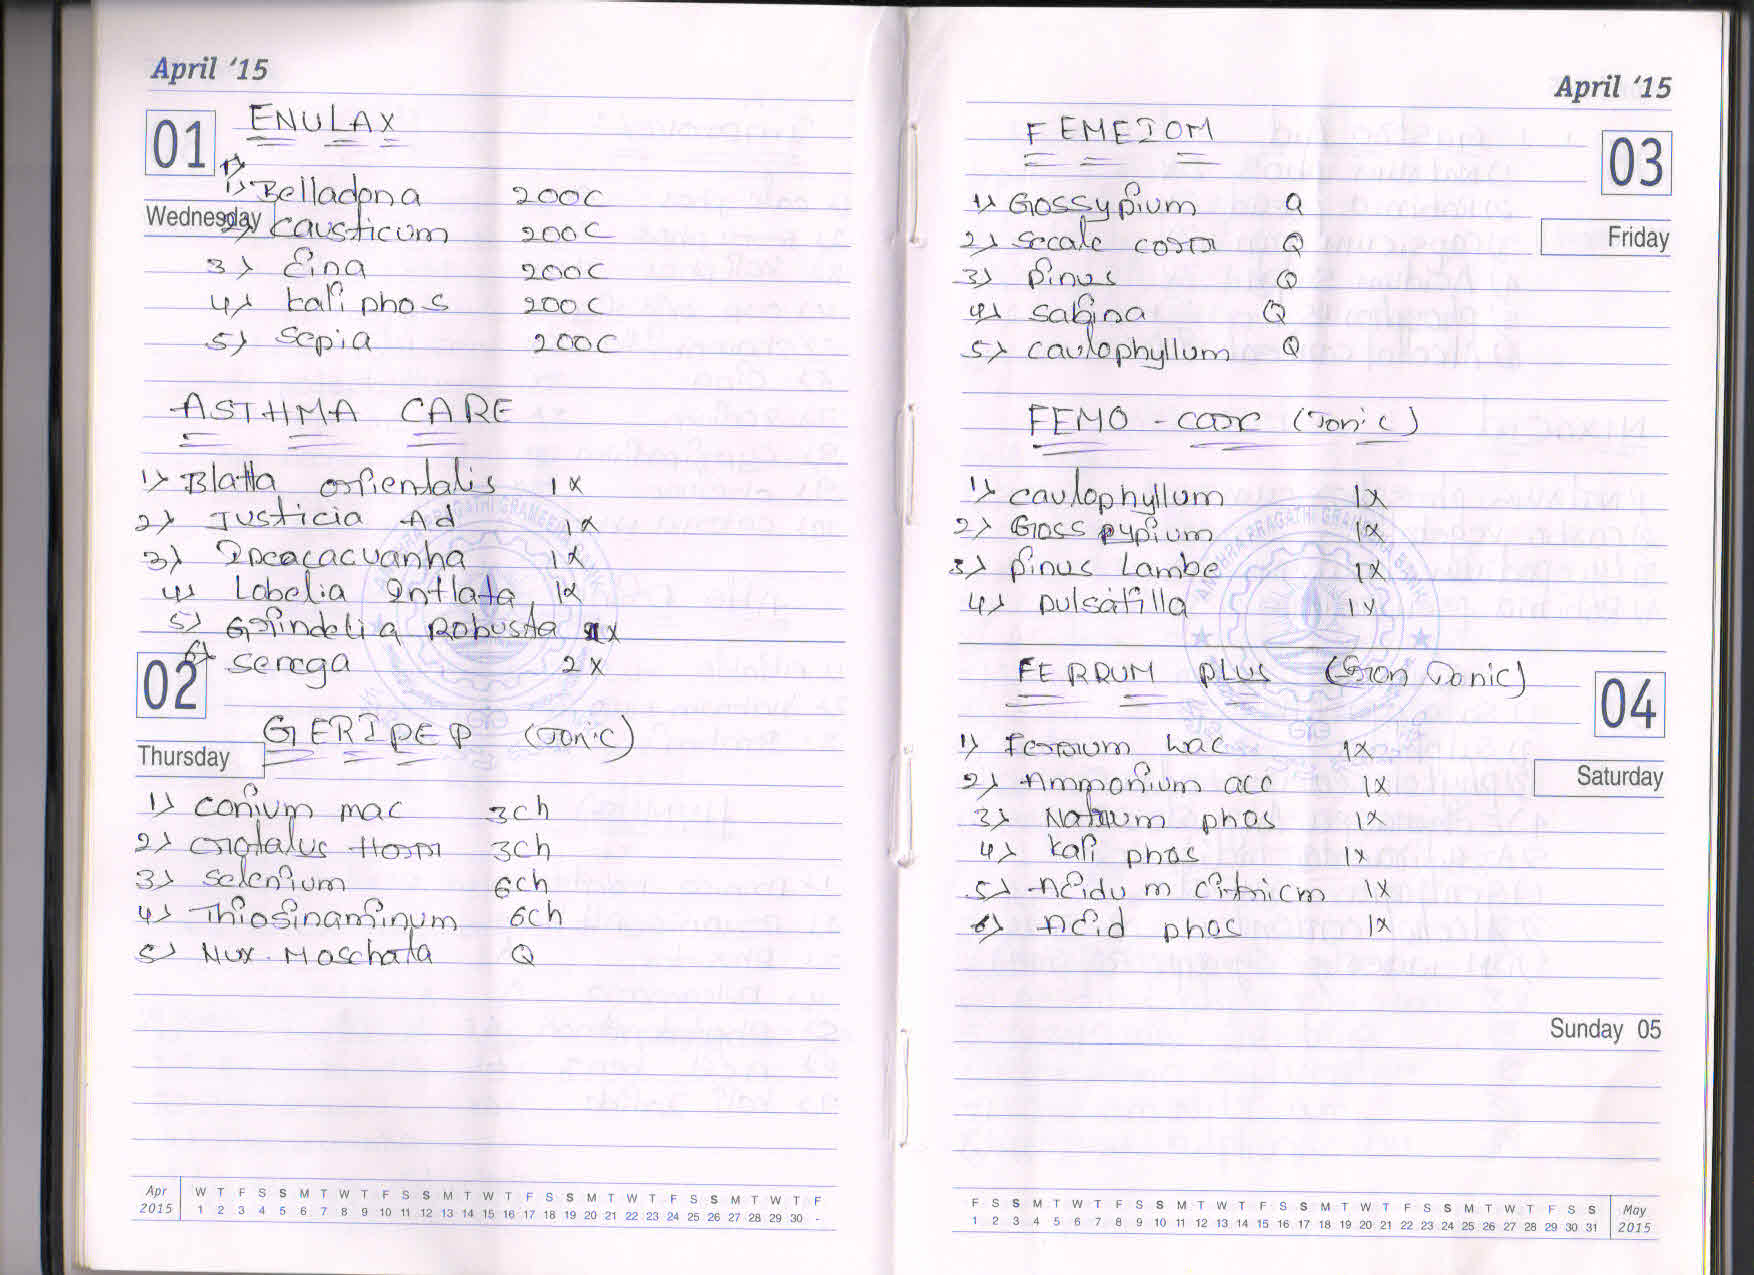 April '15
01
ENULAX
1) Belladona 200C
Wednesday
2) Causticum 200C
3) Cina 200C
4) kali phos 200C
5) Sepia 200C
ASTHMA CARE
1) Blatta orientalis 1X
2) Justicia Ad 1X
3) Ipecacacuanha 1X
4) Lobelia Inflata 1X
5) Grindelia Robusta 1X
6) Senega 2X
02
GERIPEP (Tonic)
Thursday
1) Conium mac 3ch
2) Crotalus Horr 3ch
3) Selenium 6ch
4) Thiosinaminum 6ch
5) Nux. Moschata Q
Apr W T F S S M T W T F S S M T W T F S S M T W T F S S M T W T F
2015 1 2 3 4 5 6 7 8 9 10 11 12 13 14 15 16 17 18 19 20 21 22 23 24 25 26 27 28 29 30 -
April '15
03
Friday
1) Gossypium Q
2) Secale Q
3) Pinus Q
4) Sabina Q
5) Caulophyllum Q
FEMO - (Tonic)
1) Caulophyllum 1X
2) Gosspypium 1X
3) Pinus Lambe 1X
4) Pulsatilla 1X
FERRUM PLUS (Iron Tonic)
04
Saturday
1) Ferrum 1X
2) Ammonium acc 1X
3) Natrum phos 1X
4) kali phos 1X
5) Acidum citricm 1X
6) Acid phos 1X
Sunday 05
F S S M T W T F S S M T W T F S S M T W T F S S M T W T F S S May
1 2 3 4 5 6 7 8 9 10 11 12 13 14 15 16 17 18 19 20 21 22 23 24 25 26 27 28 29 30 31 2015